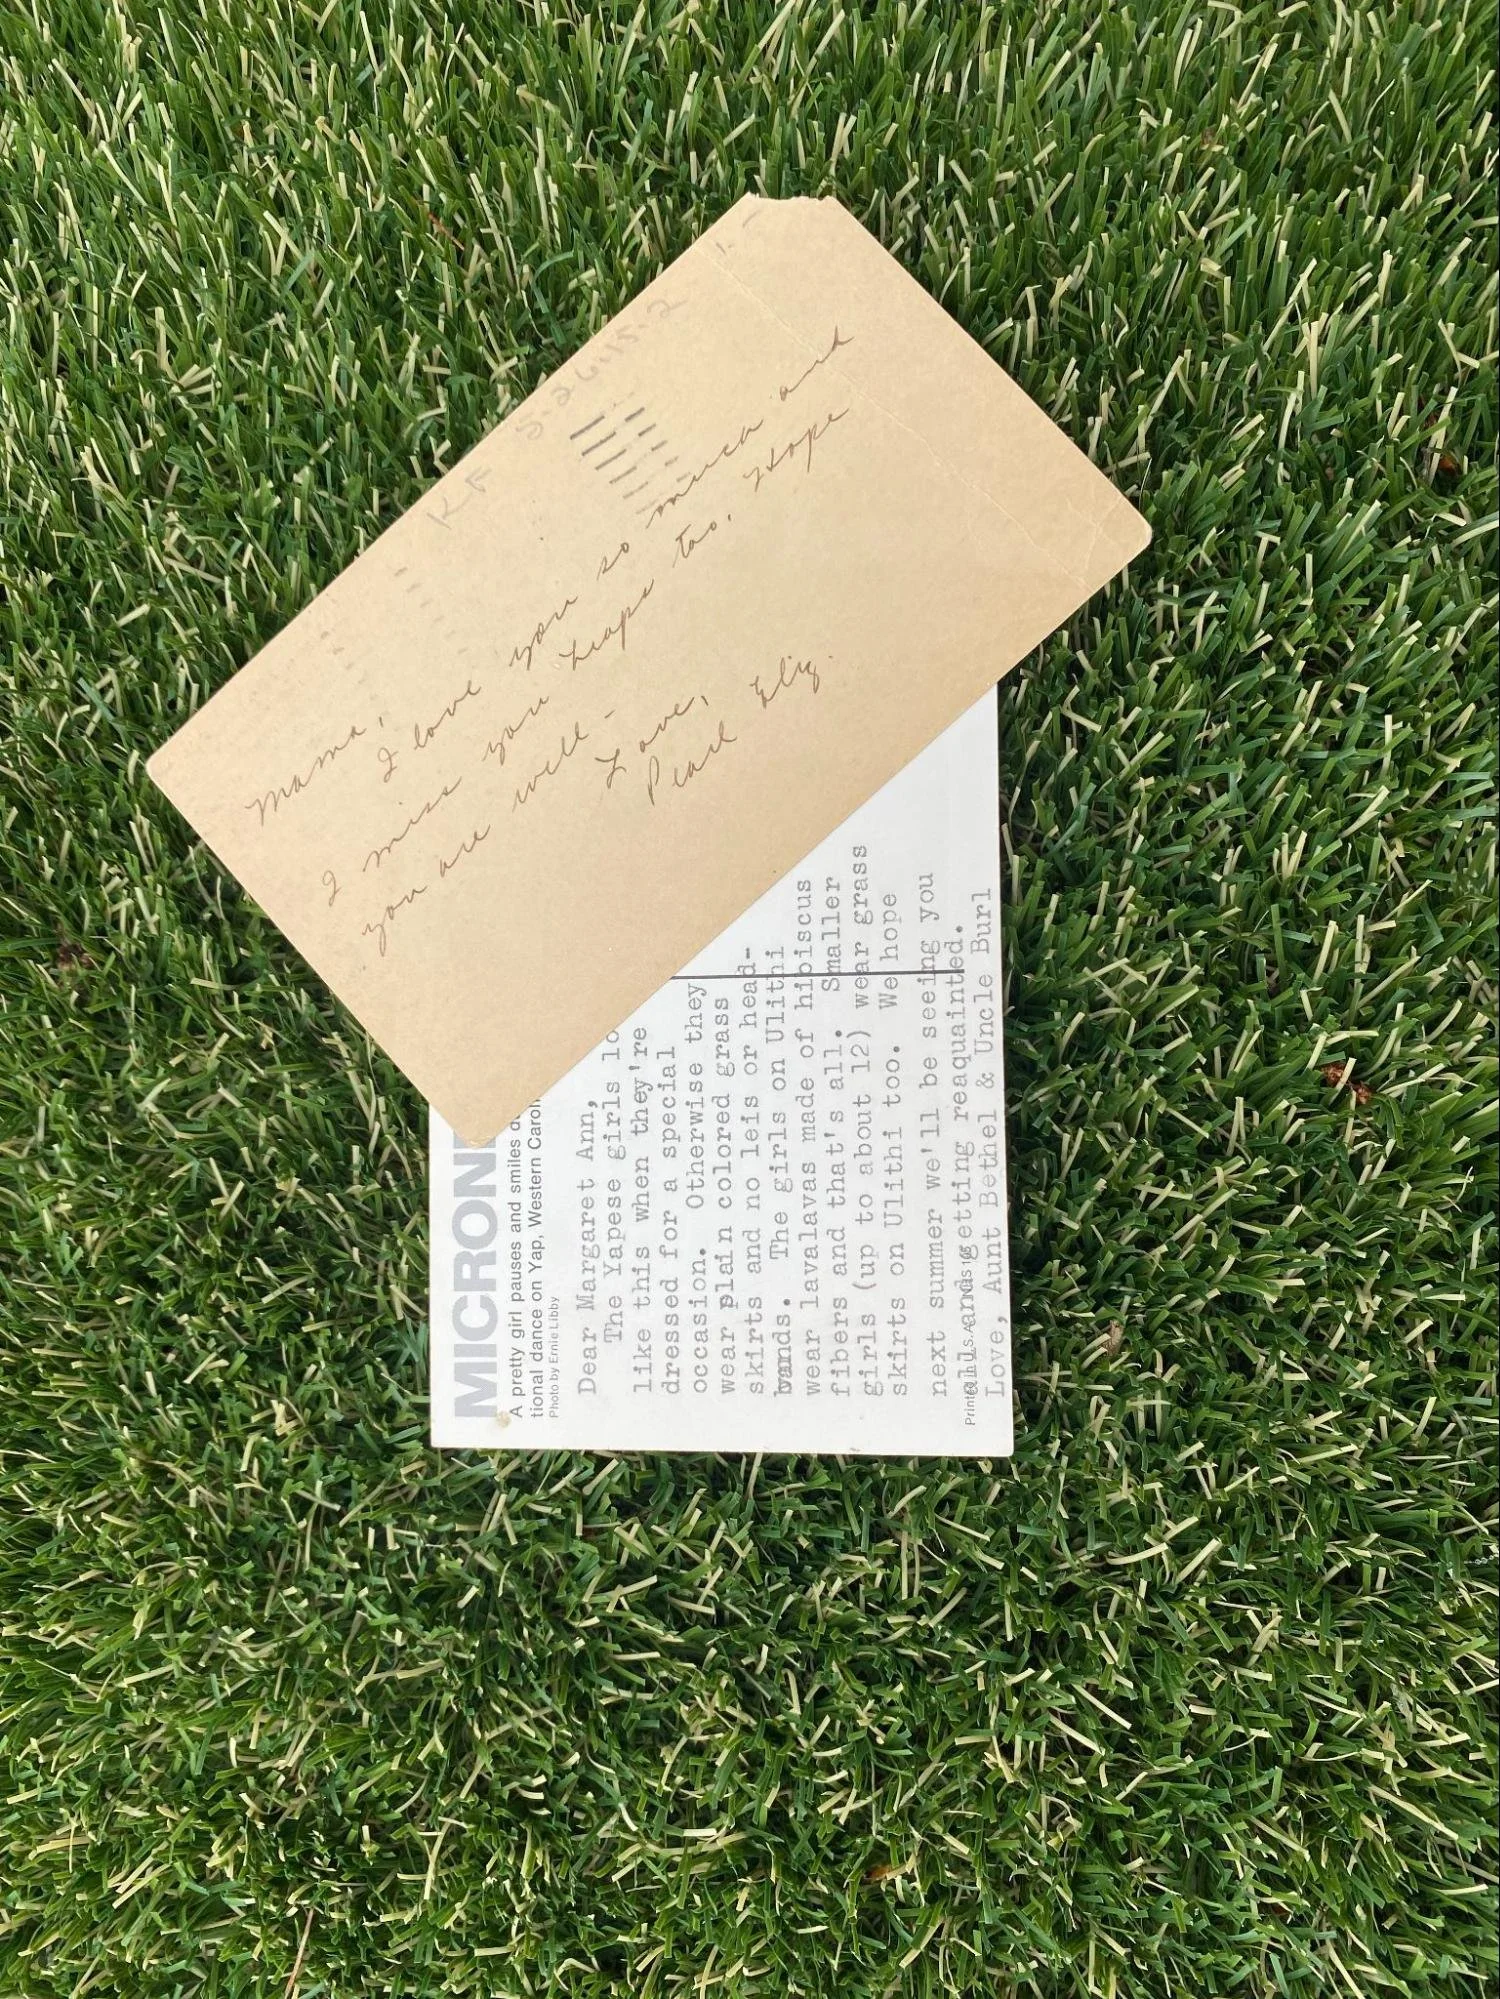 Mama,
I love you so much and
I miss you heaps too. Hope
you are well-
Love,
Pearl Eliz.
KF
MICRON
A pretty girl pauses and smiles
tional dance on Yap, Western
Photo by Ernie Libby
Dear Margaret Ann,
The Yapese girls lo
like this when they're
dressed for a special
occasion. Otherwise they
wear plain colored grass
skirts and no leis or head-
bands. The girls on Ulithi
wear lavalavas made of hibiscus
fibers and that's all. Smaller
girls (up to about 12) wear grass
skirts on Ulithi too. We hope
next summer we'll be seeing you
and getting reaquainted.
Love, Aunt Bethel & Uncle Burl